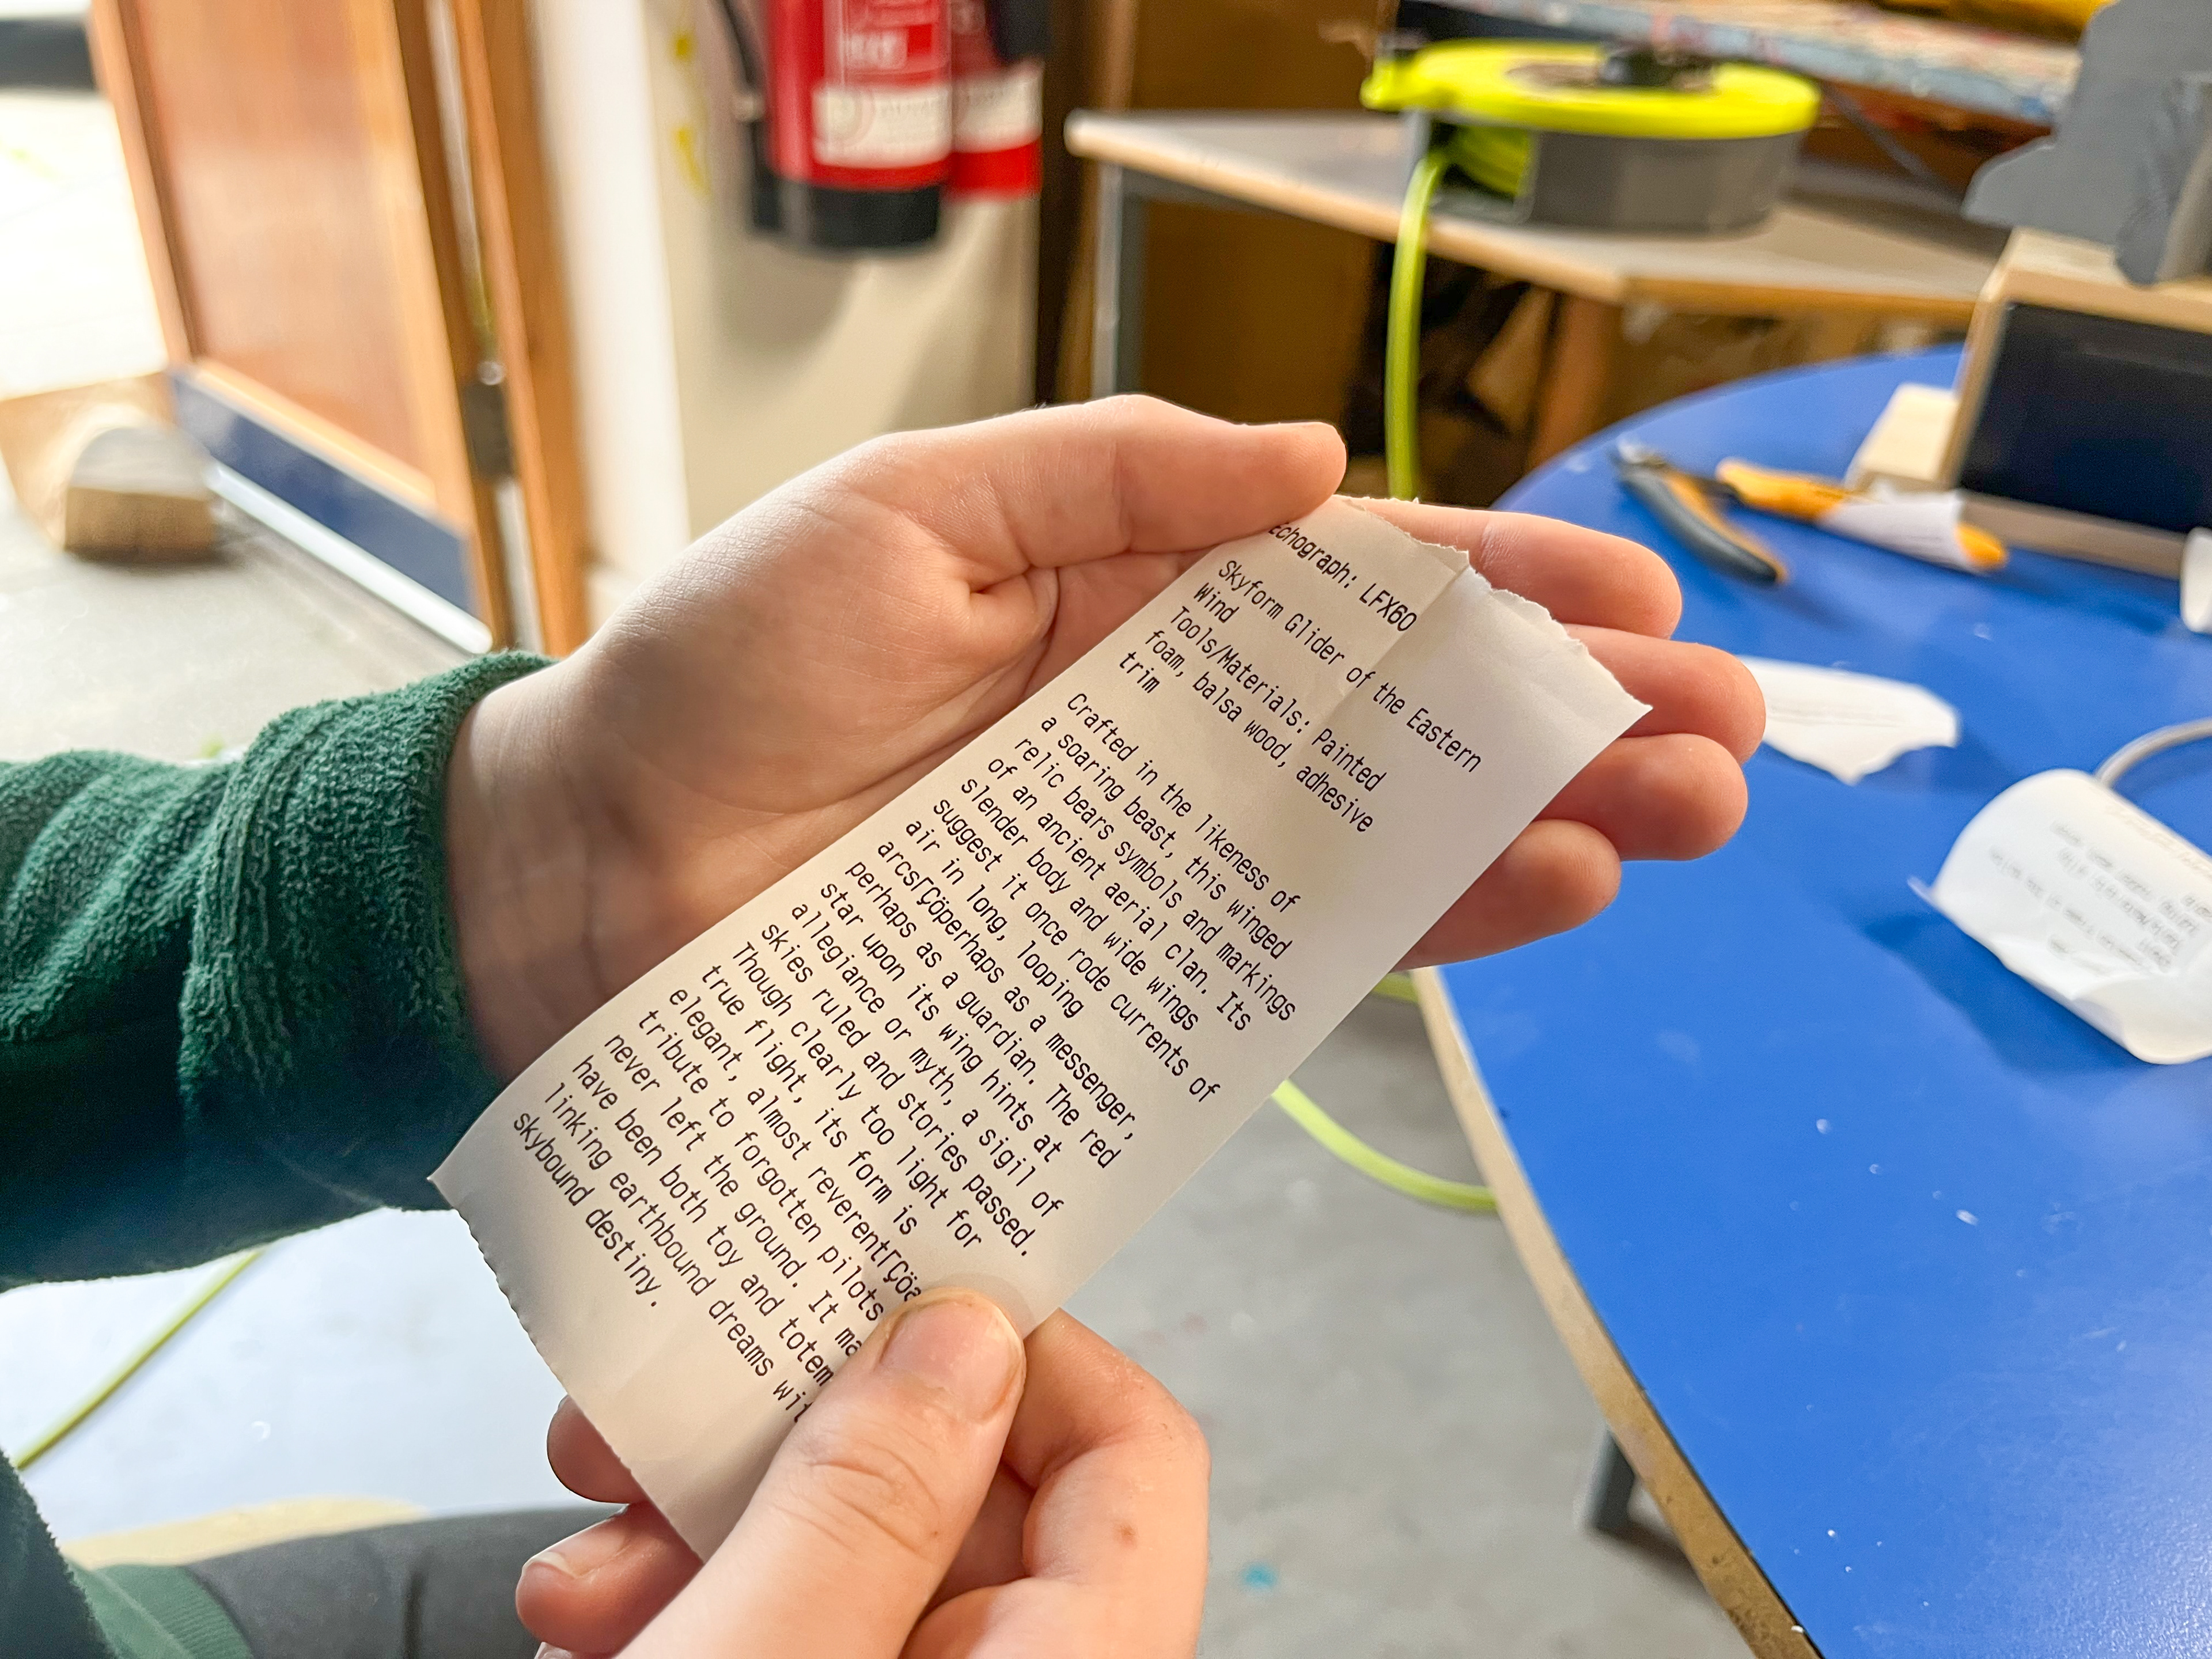 Echograph: LFX60
Skyform Glider of the Eastern
Wind
Tools/Materials: Painted
foam, balsa wood, adhesive
trim
Crafted in the likeness of
a soaring beast, this winged
relic bears symbols and markings
of an ancient aerial clan. Its
slender body and wide wings
suggest it once rode currents of
air in long, looping
arcsΓÇöperhaps as a messenger,
perhaps as a guardian. The red
star upon its wing hints at
allegiance or myth, a sigil of
skies ruled and stories passed.
Though clearly too light for
true flight, its form is
elegant, almost reverentΓÇöa
tribute to forgotten pilots
never left the ground. It
have been both toy and totem
linking earthbound dreams
skybound destiny.